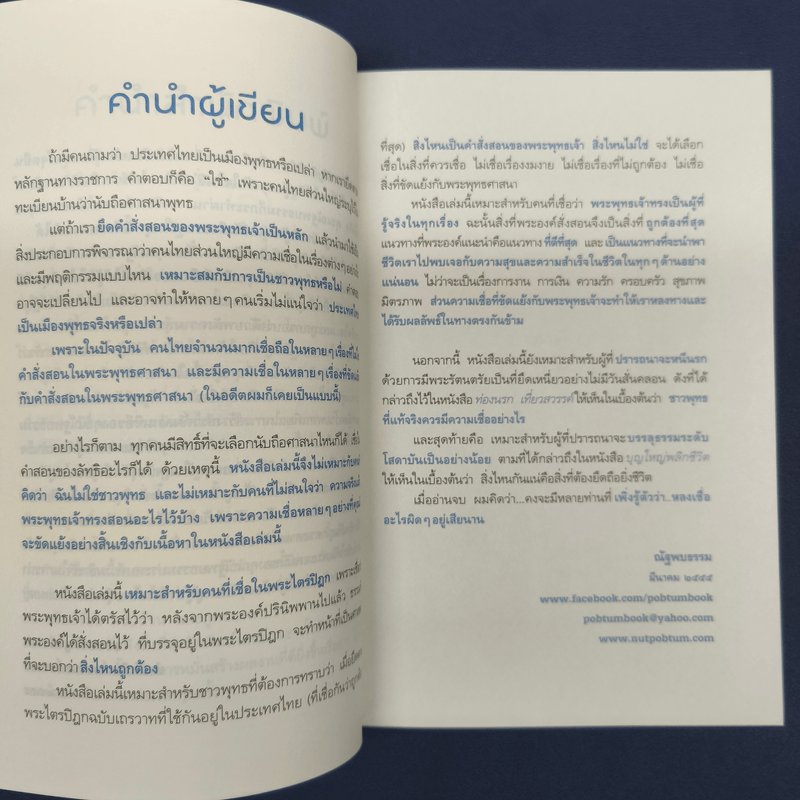 คำนำผู้เขียน
ถ้ามีคนถามว่า ประเทศไทยเป็นเมืองพุทธหรือเปล่า หากเรายึดตาม
หลักฐานทางราชการ คำตอบก็คือ “ใช่” เพราะคนไทยส่วนใหญ่ระบุไว้ใน
ทะเบียนบ้านว่านับถือศาสนาพุทธ
แต่ถ้าเรา ยึดคำสั่งสอนของพระพุทธเจ้าเป็นหลัก แล้วนำมาใช้เป็น
สิ่งประกอบการพิจารณาว่าคนไทยส่วนใหญ่มีความเชื่อในเรื่องต่างๆ อย่างไร
และมีพฤติกรรมแบบไหน เหมาะสมกับการเป็นชาวพุทธหรือไม่ คำตอบ
อาจจะเปลี่ยนไป และอาจทำให้หลายๆ คนเริ่มไม่แน่ใจว่า ประเทศไทย
เป็นเมืองพุทธจริงหรือเปล่า
เพราะในปัจจุบัน คนไทยจำนวนมากเชื่อถือในหลายๆ เรื่องที่ไม่ใช่
คำสั่งสอนในพระพุทธศาสนา และมีความเชื่อในหลายๆ เรื่องที่ขัดแย้ง
กับคำสั่งสอนในพระพุทธศาสนา (ในอดีตผมก็เคยเป็นแบบนี้)
อย่างไรก็ตาม ทุกคนมีสิทธิ์ที่จะเลือกนับถือศาสนาไหนก็ได้ เชื่อ
คำสอนของลัทธิอะไรก็ได้ ด้วยเหตุนี้ หนังสือเล่มนี้จึงไม่เหมาะกับคนที่
คิดว่า ฉันไม่ใช่ชาวพุทธ และไม่เหมาะกับคนที่ไม่สนใจว่า ความจริงแล้ว
พระพุทธเจ้าทรงสอนอะไรไว้บ้าง เพราะความเชื่อหลายๆ อย่างที่คุณมี
จะขัดแย้งอย่างสิ้นเชิงกับเนื้อหาในหนังสือเล่มนี้
หนังสือเล่มนี้ เหมาะสำหรับคนที่เชื่อในพระไตรปิฎก เพราะเชื่อที่
พระพุทธเจ้าได้ตรัสไว้ว่า หลังจากพระองค์ปรินิพพานไปแล้ว ธรรมที่
พระองค์ได้สั่งสอนไว้ ที่บรรจุอยู่ในพระไตรปิฎก จะทำหน้าที่เป็นศาสดา
ที่จะบอกว่า สิ่งไหนถูกต้อง
หนังสือเล่มนี้เหมาะสำหรับชาวพุทธที่ต้องการทราบว่า เมื่อยึดตาม
พระไตรปิฎกฉบับเถรวาทที่ใช้กันอยู่ในประเทศไทย (ที่เชื่อกันว่าถูกต้อง
ที่สุด) สิ่งไหนเป็นคำสั่งสอนของพระพุทธเจ้า สิ่งไหนไม่ใช่ จะได้เลือก
เชื่อในสิ่งที่ควรเชื่อ ไม่เชื่อเรื่องงมงาย ไม่เชื่อเรื่องที่ไม่ถูกต้อง ไม่เชื่อ
สิ่งที่ขัดแย้งกับพระพุทธศาสนา
หนังสือเล่มนี้เหมาะสำหรับคนที่เชื่อว่า พระพุทธเจ้าทรงเป็นผู้ที่
รู้จริงในทุกเรื่อง ฉะนั้นสิ่งที่พระองค์สั่งสอนจึงเป็นสิ่งที่ ถูกต้องที่สุด
แนวทางที่พระองค์แนะนำคือแนวทาง ที่ดีที่สุด และ เป็นแนวทางที่จะนำพา
ชีวิตเราไปพบเจอกับความสุขและความสำเร็จในชีวิตในทุกๆ ด้านอย่าง
แน่นอน ไม่ว่าจะเป็นเรื่องการงาน การเงิน ความรัก ครอบครัว สุขภาพ
มิตรภาพ ส่วนความเชื่อที่ขัดแย้งกับพระพุทธเจ้าจะทำให้เราหลงทางและ
ได้รับผลลัพธ์ในทางตรงกันข้าม
นอกจากนี้ หนังสือเล่มนี้ยังเหมาะสำหรับผู้ที่ ปรารถนาจะหนีนรก
ด้วยการมีพระรัตนตรัยเป็นที่ยึดเหนี่ยวอย่างไม่มีวันสั่นคลอน ดังที่ได้
กล่าวถึงไว้ในหนังสือ ท่องนรก เที่ยวสวรรค์ ให้เห็นในเบื้องต้นว่า ชาวพุทธ
ที่แท้จริงควรมีความเชื่ออย่างไร
และสุดท้ายคือ เหมาะสำหรับผู้ที่ปรารถนาจะ บรรลุธรรมระดับ
โสดาบันเป็นอย่างน้อย ตามที่ได้กล่าวถึงในหนังสือ บุญใหญ่พลิกชีวิต
ให้เห็นในเบื้องต้นว่า สิ่งไหนกันแน่คือสิ่งที่ต้องยึดถือยิ่งชีวิต
เมื่ออ่านจบ ผมคิดว่า...คงจะมีหลายท่านที่ เพิ่งรู้ตัวว่า..หลงเชื่อ
อะไรผิดๆ อยู่เสียนาน
ณัฐพบธรรม
มีนาคม ๒๕๕๕
www.facebook.com/pobtumbook
pobtumbook@yahoo.com
www.nutpobtum.com